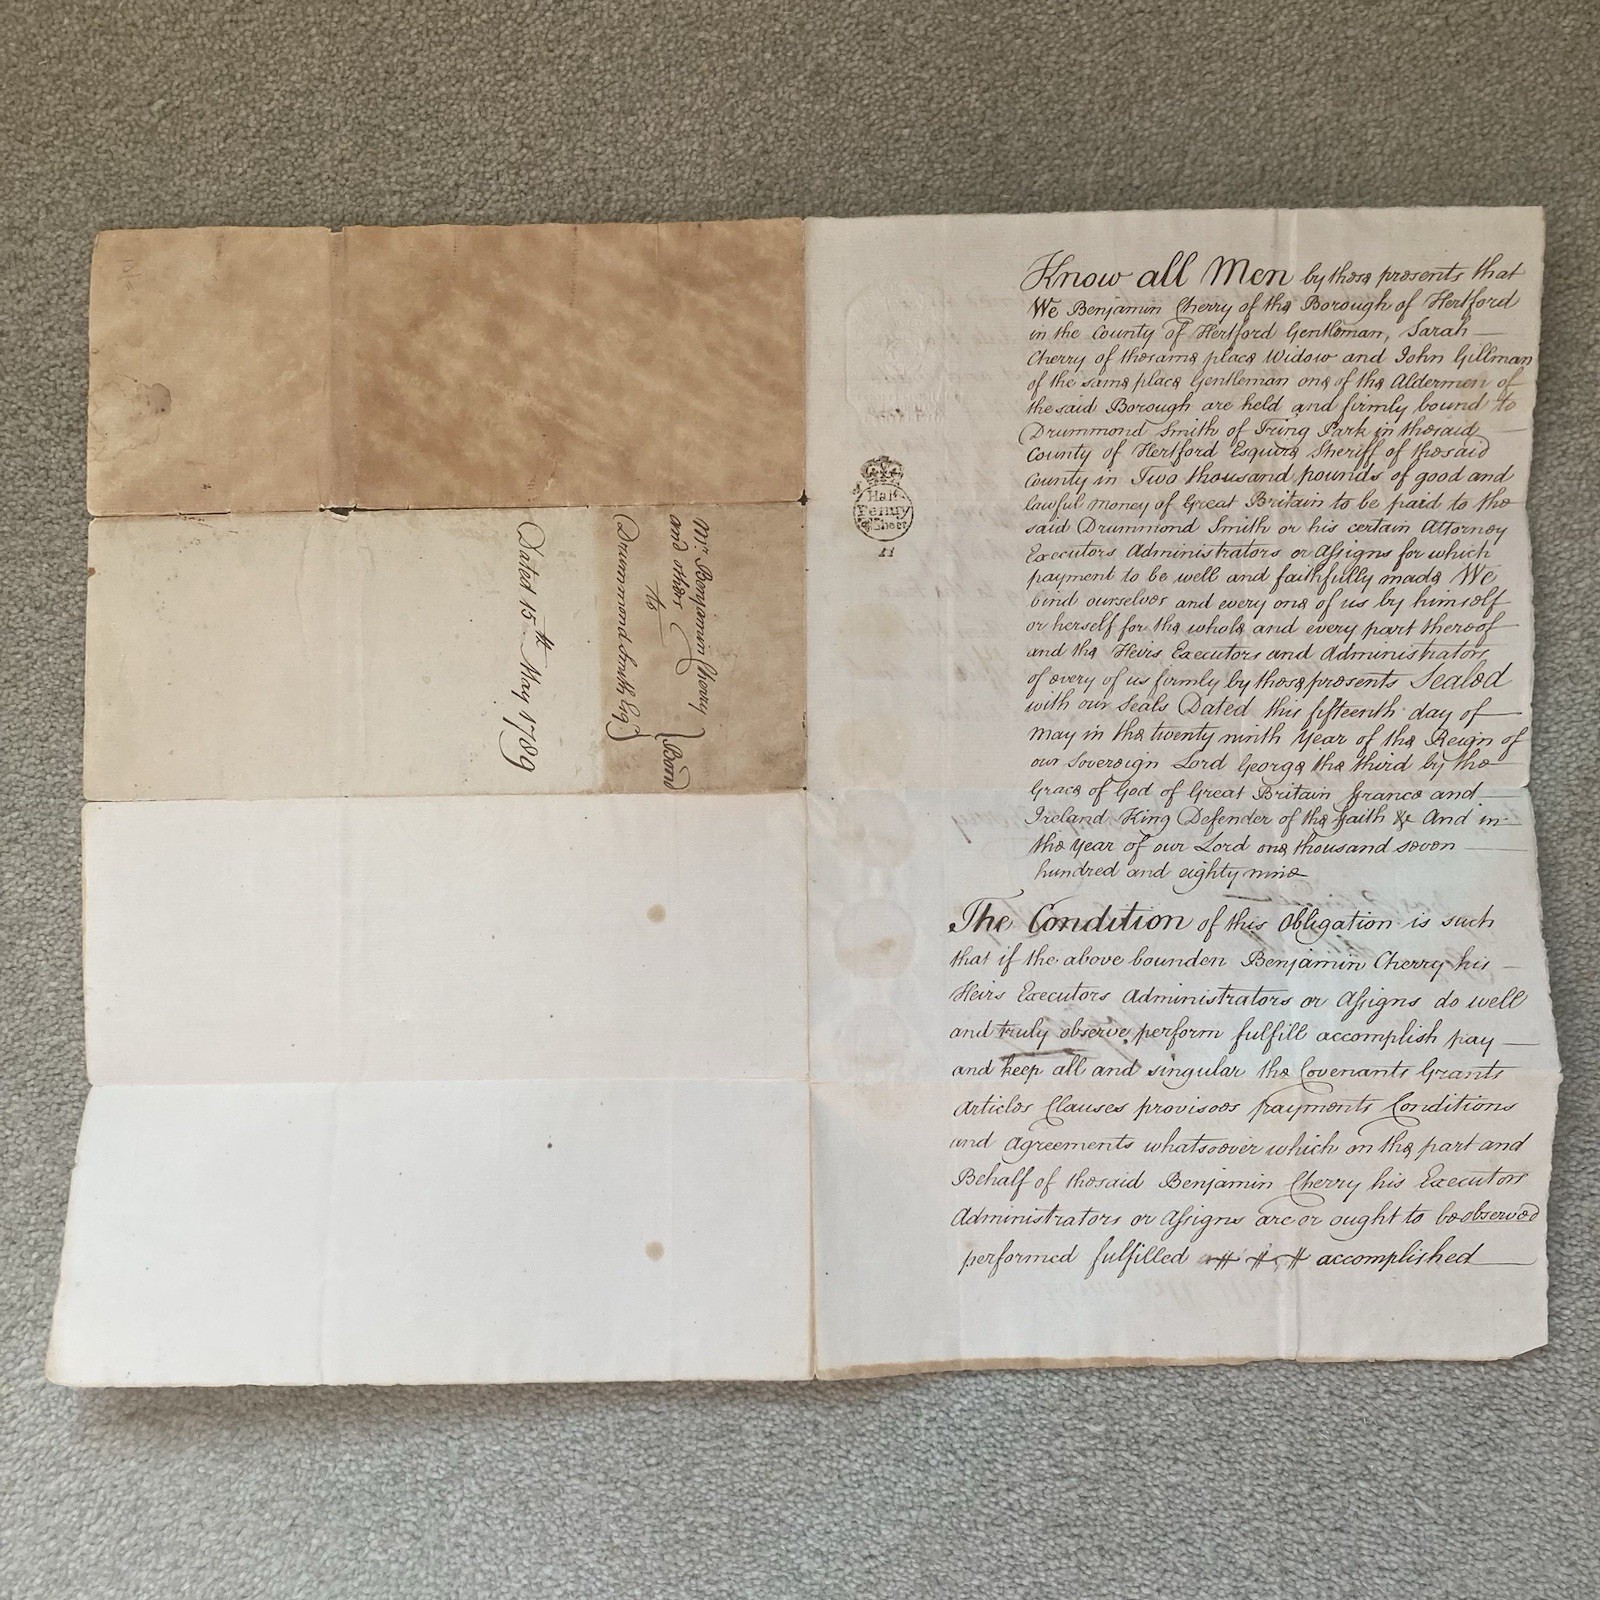 Know all Men by these presents that
We Benjamin Cherry of the Borough of Hertford
in the County of Hertford Gentleman, Sarah
Cherry of the same place Widow and John Gillman
of the same place Gentleman one of the Aldermen of
the said Borough are held and firmly bound to
Drummond Smith of Tring Park in the said
County of Hertford Esquire Sheriff of the said
County in Two thousand pounds of good and
lawful money of Great Britain to be paid to the
said Drummond Smith or his certain Attorney
Executors Administrators or Assigns for which
payment to be well and faithfully made We
bind ourselves and every one of us by himself
or herself for the whole and every part thereof
and the Heirs Executors and Administrators
of every of us firmly by these presents Sealed
with our Seals Dated this fifteenth day of
May in the twenty ninth Year of the Reign of
our Sovereign Lord George the third by the
Grace of God of Great Britain France and
Ireland King Defender of the faith &c And in
the Year of our Lord one thousand seven
hundred and eighty nine
The Condition of this Obligation is such
that if the above bounden Benjamin Cherry his
Heirs Executors Administrators or Assigns do well
and truly observe perform fulfill accomplish pay
and keep all and singular the Covenants Grants
Articles Clauses provisoes payments Conditions
and Agreements whatsoever which on the part and
Behalf of the said Benjamin Cherry his Executors
Administrators or Assigns are or ought to be observed
performed fulfilled accomplished
Half
Penny
Sheet
11
Mr. Benjamin Cherry
and others
to
Drummond Smith Esqr
Bond
Dated 15th May 1789